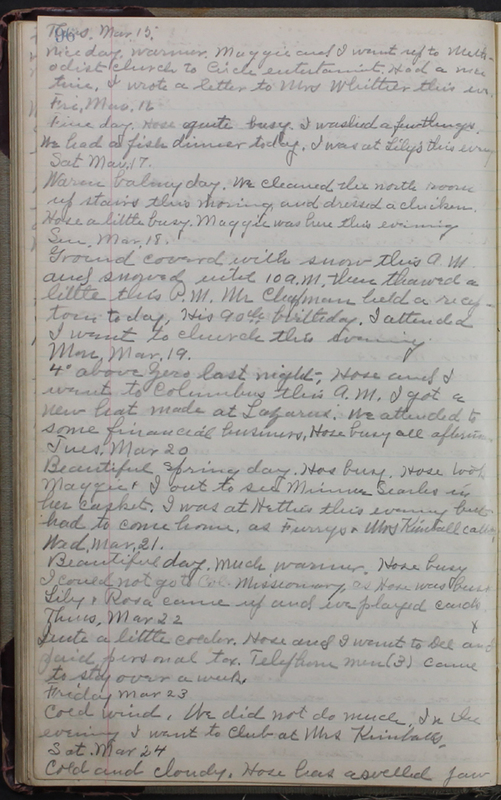 96
Thurs. Mar. 15.
Nice day, warmer. Maggie and I went up to Meth-
odist church to Circle entertaimt. Had a nice
time. I wrote a letter to Mrs Whittier this eve.
Fri, Mar. 16
Fine day. Hose quite busy. I washed a few things.
We had a fish dinner today. I was at Lily's this eve
Sat Mar. 17.
Warm balmy day. We cleaned the north room
up stairs this moring and dressed a chicken.
Hose a little busy. Maggie was here this evening
Sun. Mar. 18.
Ground covered with snow this A.M
and snowed until 10 A.M. then thawed a
little this P.M. Mr. Chapman held a recep-
tion to day, His 90th birthday. I attended
I went to church this evening.
Mon, Mar. 19.
4° above zero last night, Hose and I
went to Columbus this A.M. I got a
new hat made at Lazarus. We attended to
some financial business, Hose busy all afternoon
Tues. Mar 20
Beautiful Spring day. Hos busy. Hose took
Maggie + I out to see Minnie Searles in
her casket. I was at Hetties this evening but
had to come home, as Furrys + Mrs Kimball called
Wed, Mar. 21.
Beautiful day. Much warmer. Hose busy
I could not go to Col. Missionary, as Hose was busy
Lily + Rosa came up and we played cards
Thurs, Mar 22 x
Quite a little cooler. Hose and I went to Del and
paid personal tax. Telephone men (3) came
to stay over a week.
Friday Mar 23
Cold wind. We did not do much. In the
evening I went to Club at Mrs Kimballs.
Sat. Mar 24
Cold and cloudy. Hose has a swelled jaw